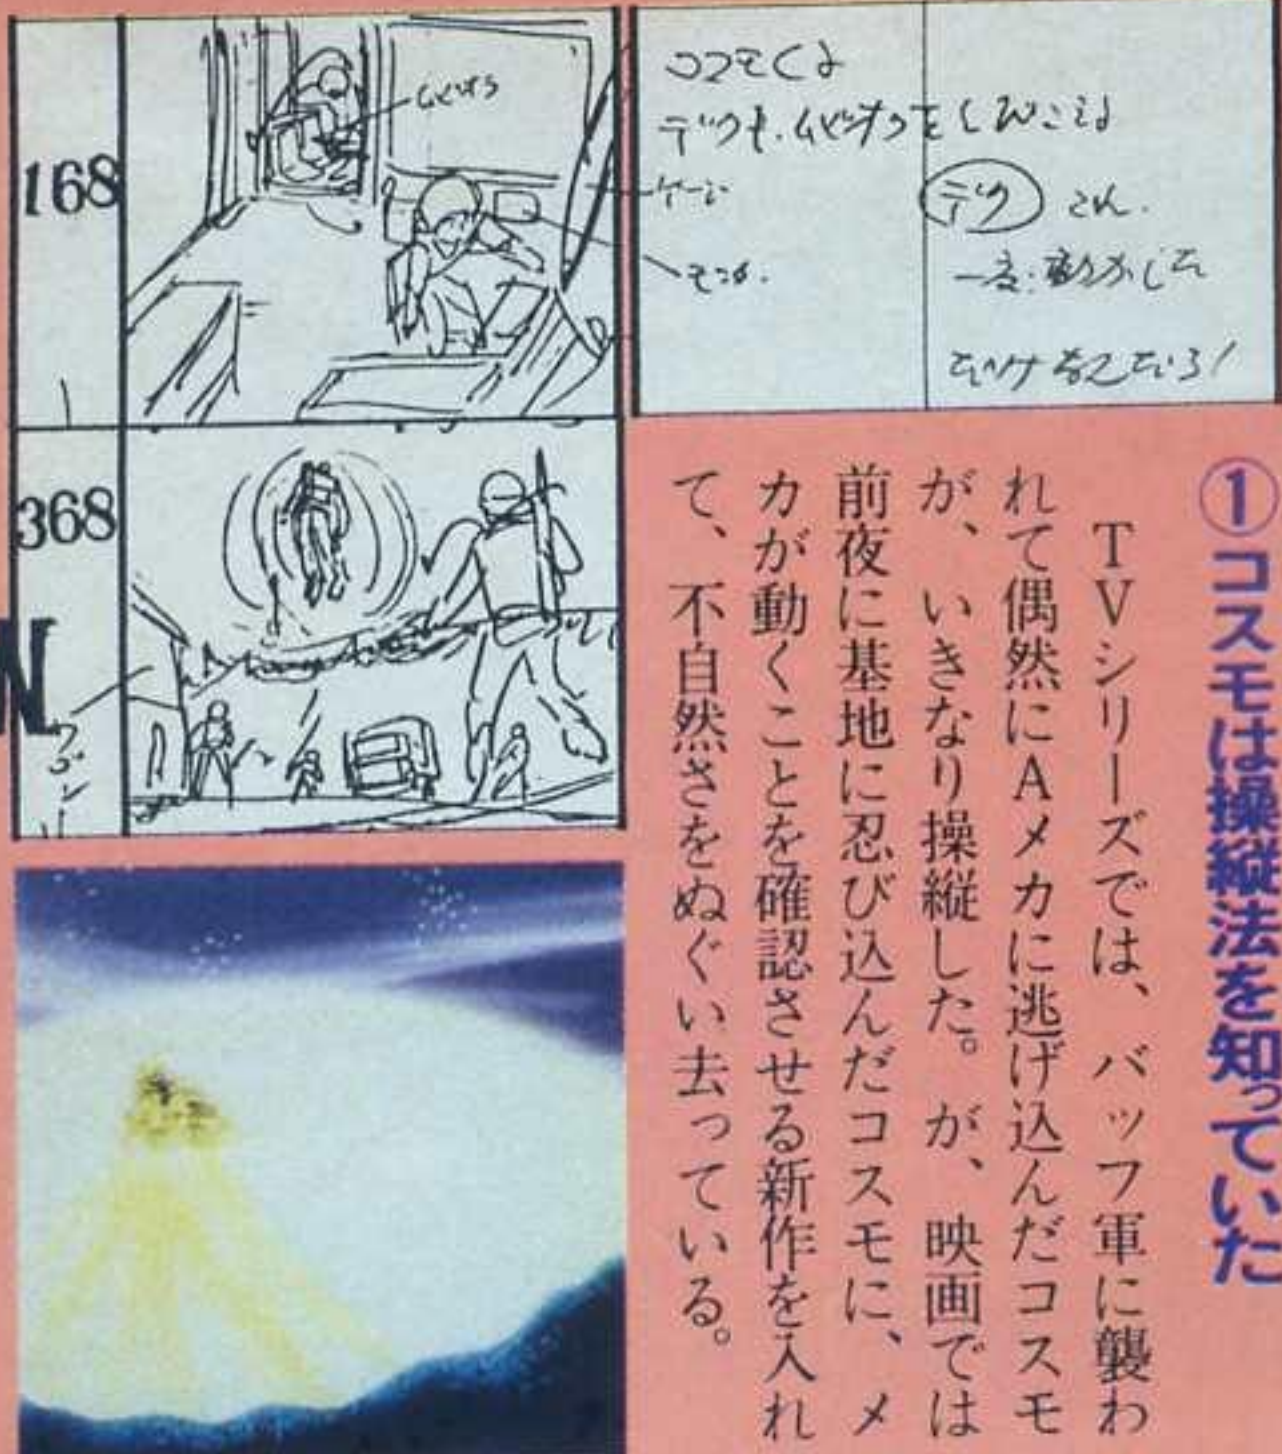 168
368
N
コスモくよ
デク
これ.
一度動かした
①コスモは操縦法を知っていた
TVシリーズでは、バッフ軍に襲わ
れて偶然にAメカに逃げ込んだコスモ
が、いきなり操縦した。が、映画では
前夜に基地に忍び込んだコスモに、メ
カが動くことを確認させる新作を入れ
て、不自然さをぬぐい去っている。